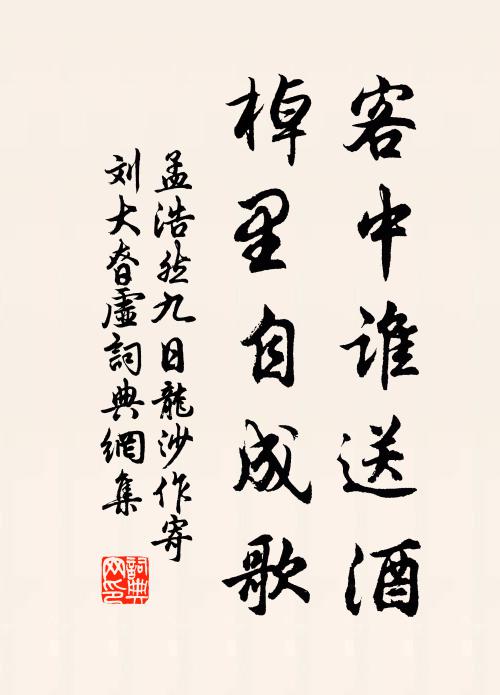 客中谁送酒
棹里自成歌
孟浩然九日龍沙作寄
刘大昚虚詞典網集
詞典网印